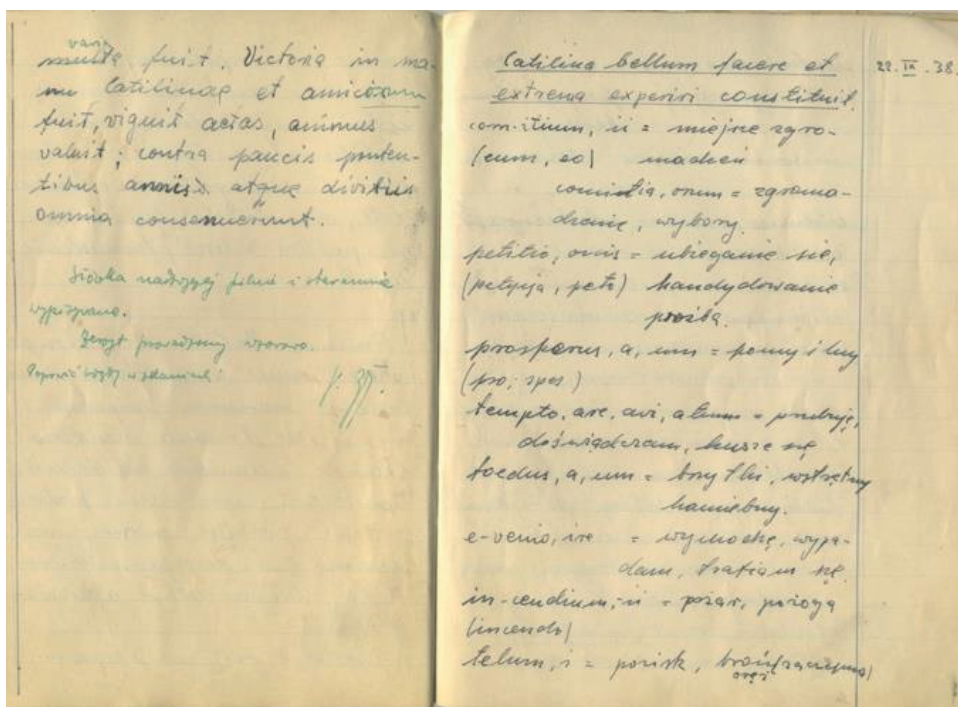 varia
multa fuit. Victoria in ma-
nu Catilinae et amicorum
fuit, viguit aetas, animus
valuit; contra paucis poten-
tibus annis atque divitiis
omnia consenuerunt.
Słówka nadzwyczaj pilnie i starannie
wypisywane.
Zeszyt prowadzony wzorowo.
Poprawić błędy w zdaniach!
Catilina bellum facere et
extrema experiri constituit.
22. IX. 38.
com-itium, ii = miejsce zgro-
(cum, eo) madzeń
comitia, orum = zgroma-
dzenie, wybory.
petitio, onis = ubieganie się,
(peto) kandydowanie
prośba.
prosperus, a, um = pomyślny
(pro, spes)
tempto, are, avi, atum = próbuję,
doświadczam, kuszę się
foedus, a, um = brzydki, wstrętny
haniebny.
e-venio, ire = wychodzę, wypa-
dam, trafiam się.
in-cendium, ii = pożar, pożoga
(incendo)
telum, i = pocisk, broń (zaczepna)
oręż